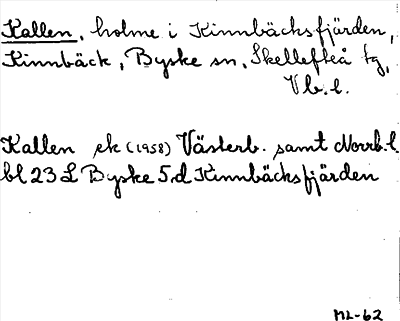 Kallen, holme i Kinnbäcksfjärden,
Kinnbäck, Byske sn, Skellefteå tg,
Vb. l.
Kallen ek (1958) Västerb. samt Norrb. l.
bl 23 L Byske 5,d Kinnbäcksfjärden
ML-62